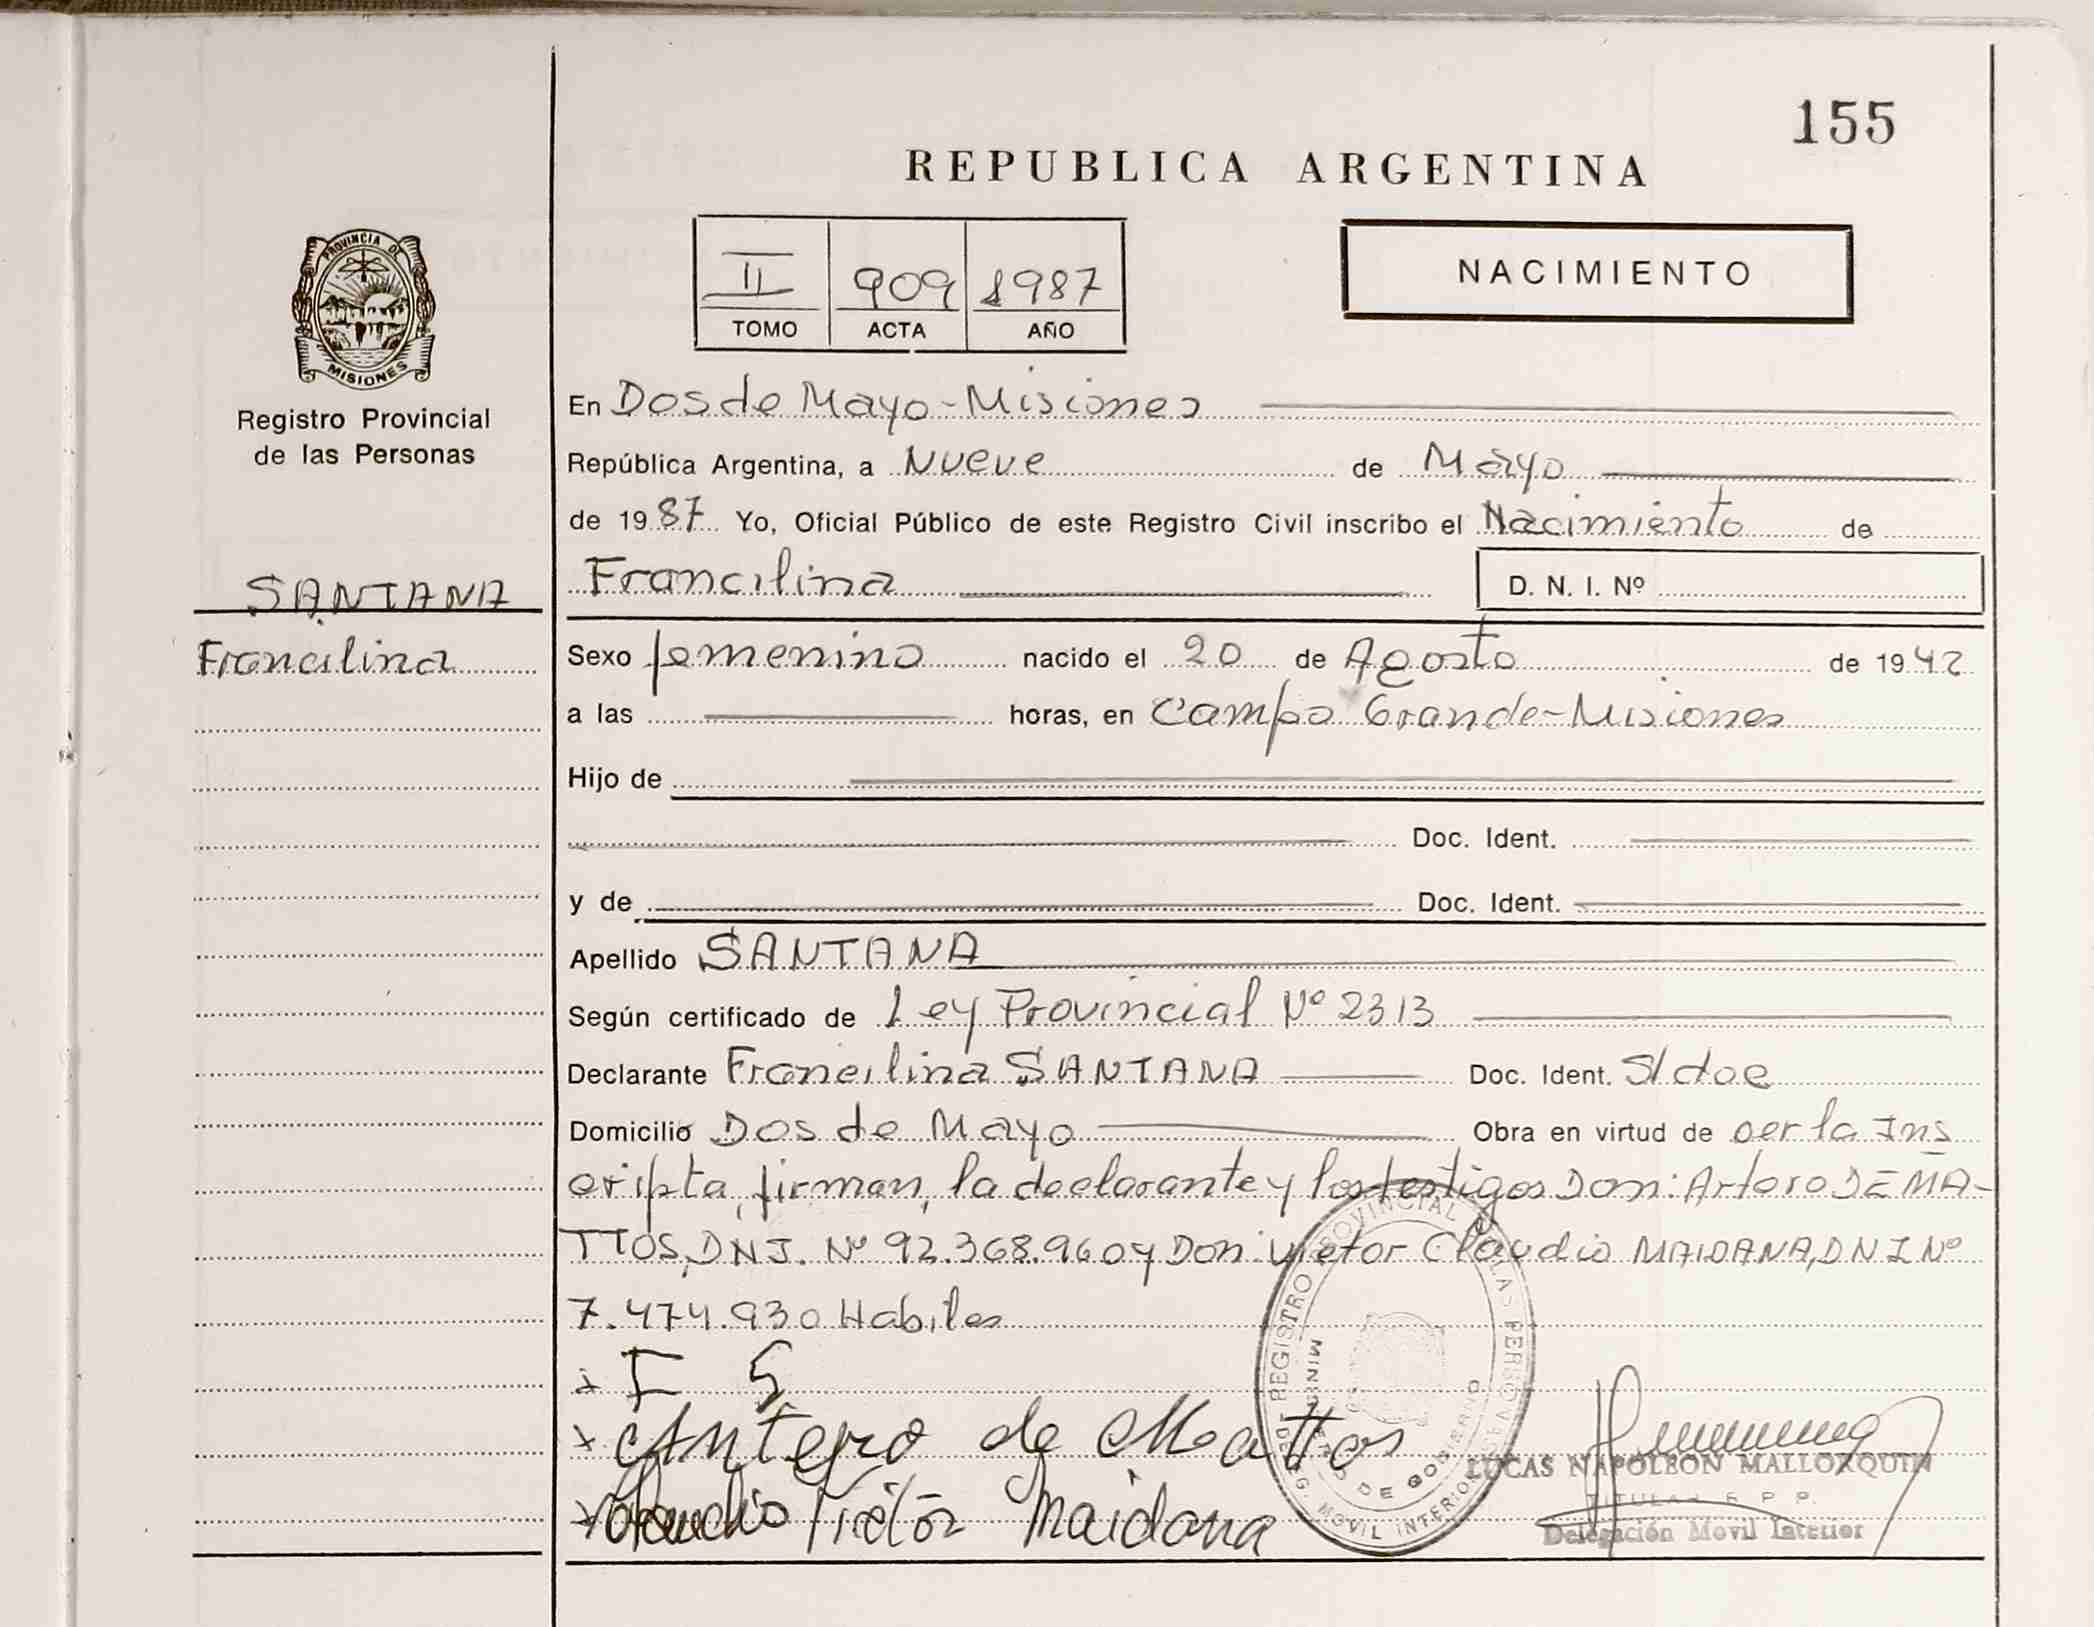 155
REPUBLICA ARGENTINA
II 909 1987
TOMO ACTA AÑO
NACIMIENTO
PROVINCIA DE
MISIONES
Registro Provincial
de las Personas
SANTANA
Francilina
En Dos de Mayo - Misiones
República Argentina, a Nueve de Mayo
de 1987 Yo, Oficial Público de este Registro Civil inscribo el Nacimiento de
Francilina D. N. I. Nº
Sexo femenino nacido el 20 de Agosto de 1942
a las horas, en Campo Grande - Misiones
Hijo de
Doc. Ident.
y de Doc. Ident.
Apellido SANTANA
Según certificado de Ley Provincial Nº 2313
Declarante Francilina SANTANA Doc. Ident. S/doc
Domicilio Dos de Mayo Obra en virtud de ser la Ins
cripta, firman, la declarante y los testigos Don: Arturo DE MA-
TTOS, D.N.I. Nº 92.368.960 y Don: Victor Claudio MAIDANA, D N I Nº
7.474.930 Habiles
x F S
x Antero de Mattos
x Claudio Victor Maidana
REGISTRO PROVINCIAL DE LAS PERSONAS
MINISTERIO DE GOBIERNO
DELEG. MOVIL INTERIOR
LUCAS NAPOLEON MALLORQUIN
TITULAR R. P. P.
Delegación Movil Interior